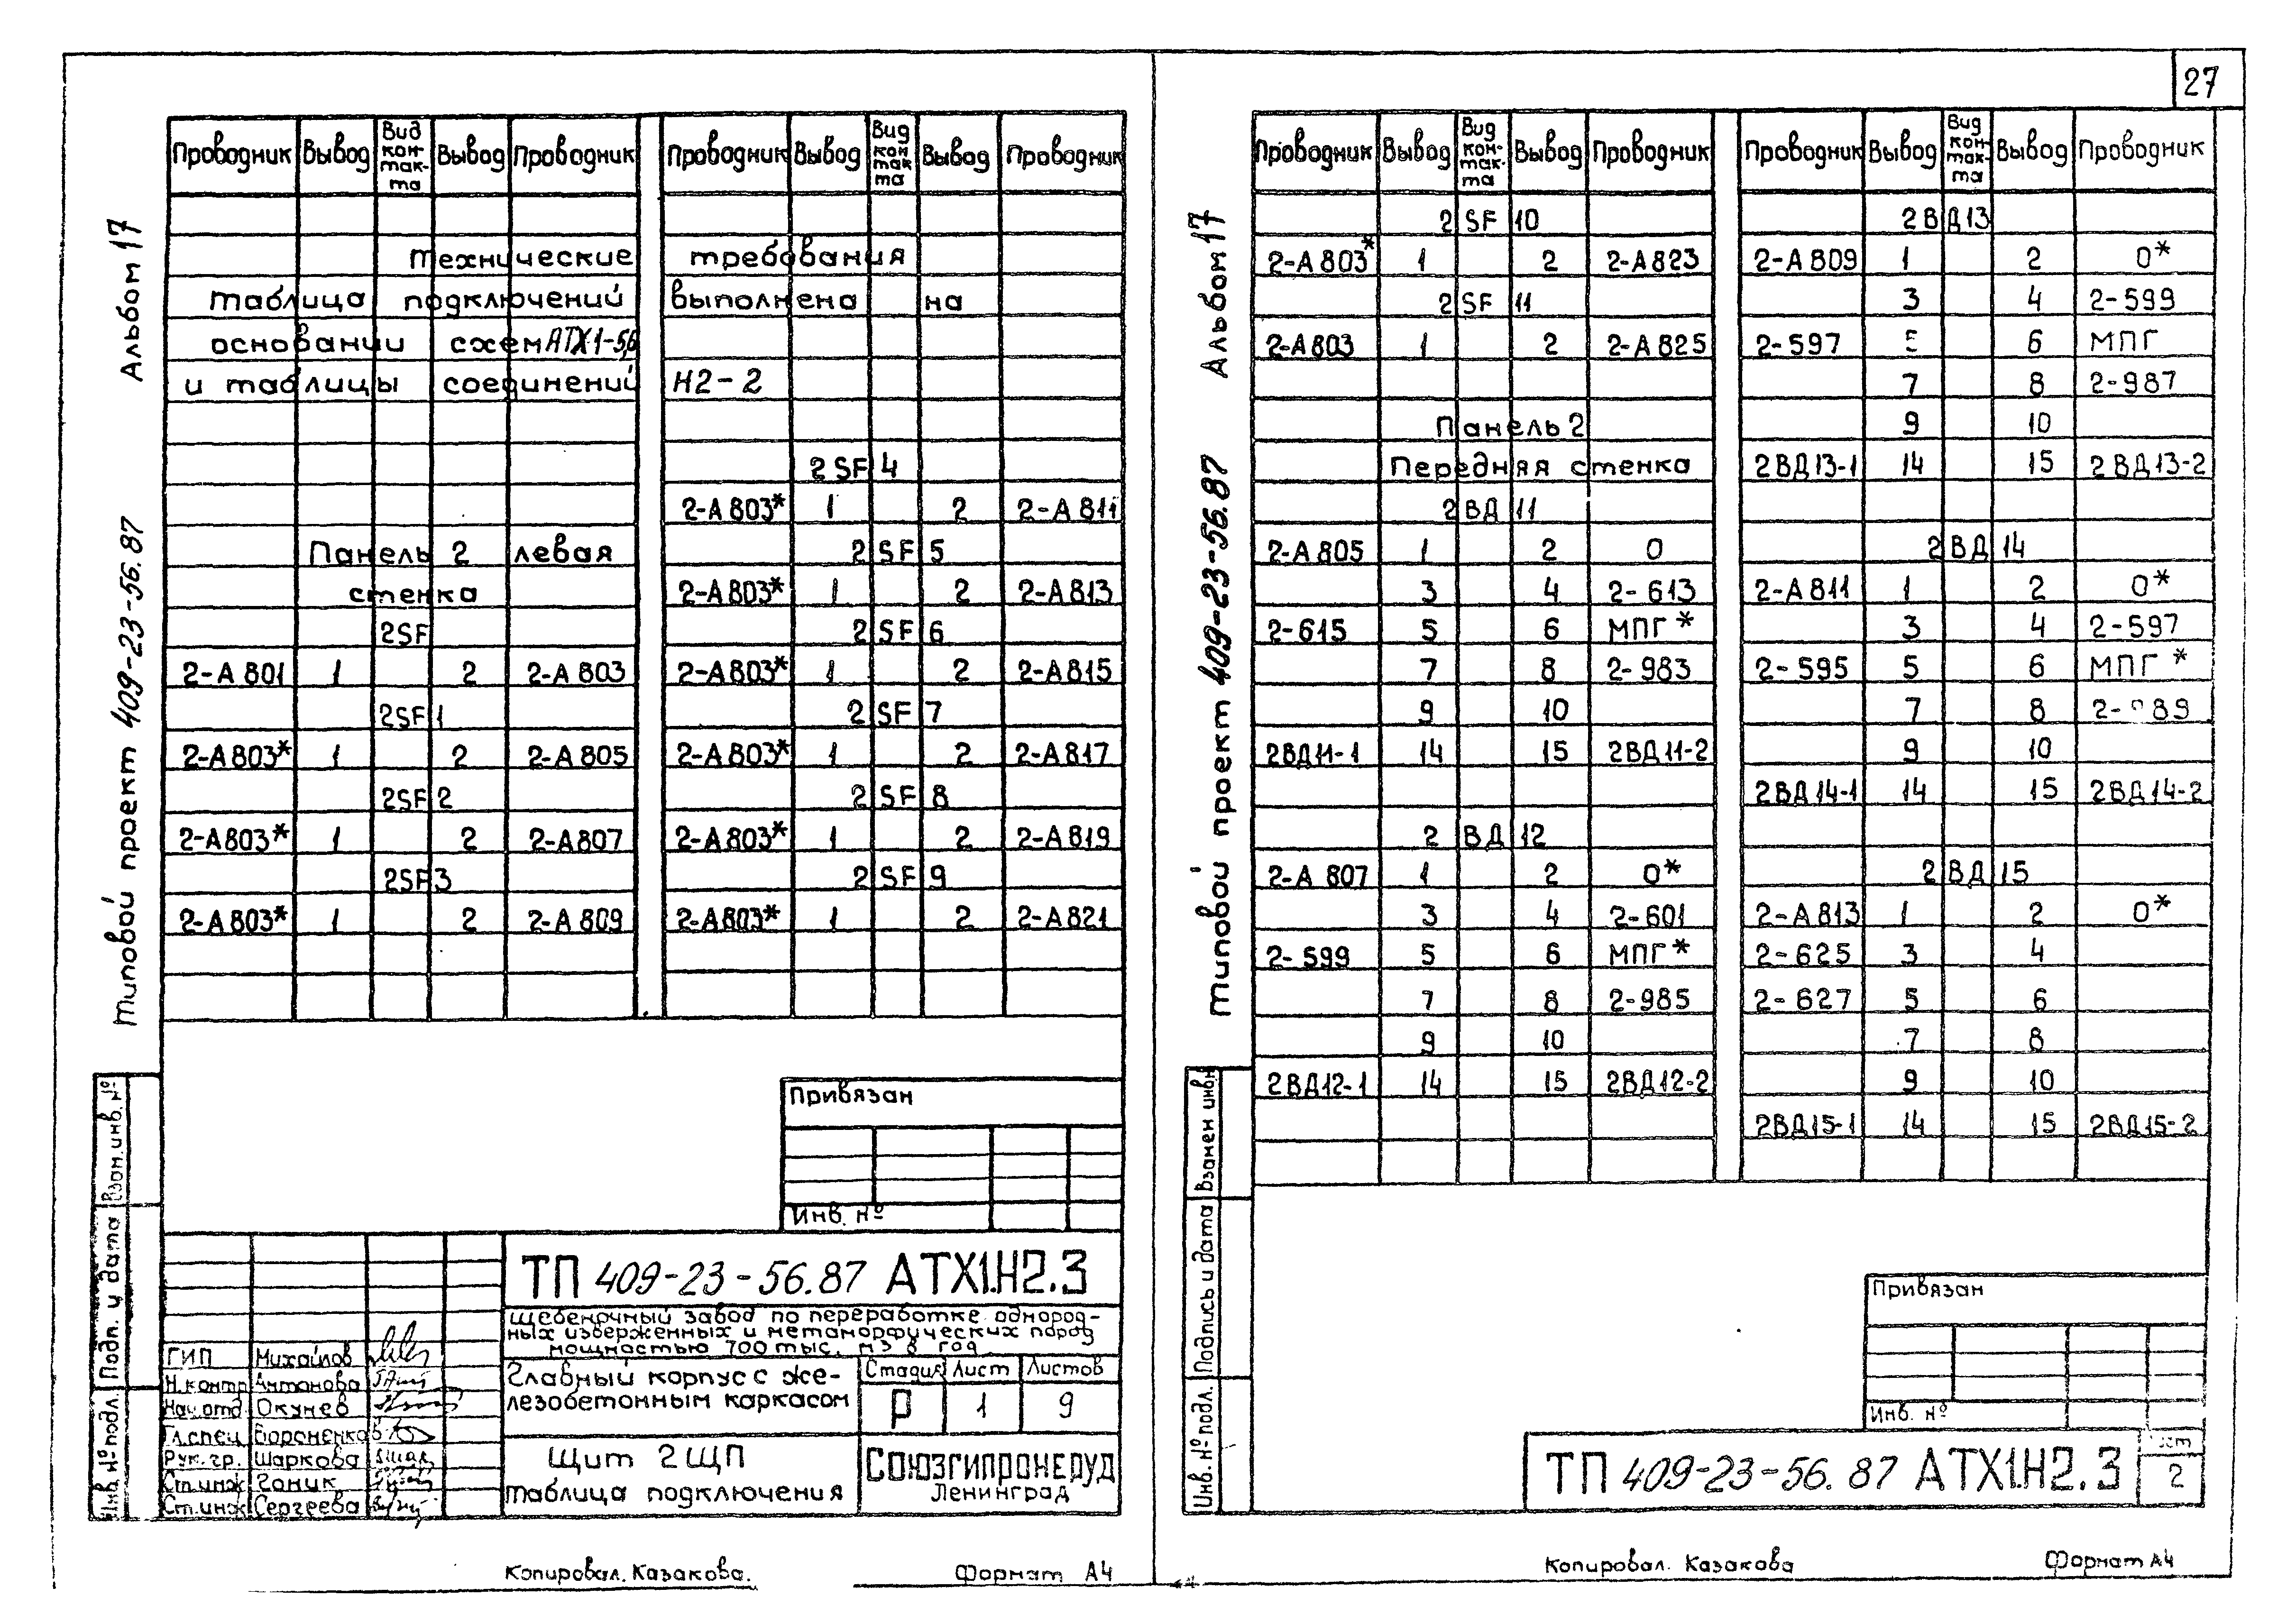 27
Альбом 17
Типовой проект 409-23-56.87
Проводник Вывод Вид контакта Вывод Проводник Проводник Вывод Вид контакта Вывод Проводник
Технические требования
Таблица подключений выполнена на
основании схем АТХ1-5,6
и таблицы соединений Н2-2
2SF4
2-А803* 1 2 2-А811
Панель 2 левая 2SF5
стенка 2-А803* 1 2 2-А813
2SF 2SF6
2-А801 1 2 2-А803 2-А803* 1 2 2-А815
2SF1 2SF7
2-А803* 1 2 2-А805 2-А803* 1 2 2-А817
2SF2 2SF8
2-А803* 1 2 2-А807 2-А803* 1 2 2-А819
2SF3 2SF9
2-А803* 1 2 2-А809 2-А803* 1 2 2-А821
Привязан
Инв. №
Взам.инв. №
Подп. и дата
Инв. № подл.
ТП 409-23-56.87 АТХ1.Н2.3
Щебеночный завод по переработке однород-
ных изверженных и метаморфических пород
мощностью 700 тыс. м3 в год
ГИП Михайлов
Н.контр Антонова
Нач.отд. Окунев
Гл.спец Вороненков
Рук. гр. Шаркова
Ст.инж Гоник
Ст.инж Сергеева
Главный корпус с же-
лезобетонным каркасом
Стадия Лист Листов
Р 1 9
Щит 2ЩП
Таблица подключения
Союзгипронеруд
Ленинград
Копировал. Казакова.
Формат А4
Альбом 17
Типовой проект 409-23-56.87
Проводник Вывод Вид контакта Вывод Проводник Проводник Вывод Вид контакта Вывод Проводник
2SF10 2ВД13
2-А803* 1 2 2-А823 2-А809 1 2 0*
2SF11 3 4 2-599
2-А803 1 2 2-А825 2-597 5 6 МПГ
7 8 2-987
Панель 2 9 10
Передняя стенка 2ВД13-1 14 15 2ВД13-2
2ВД11
2-А805 1 2 0 2ВД14
3 4 2-613 2-А811 1 2 0*
2-615 5 6 МПГ* 3 4 2-597
7 8 2-983 2-595 5 6 МПГ*
9 10 7 8 2-989
2ВД11-1 14 15 2ВД11-2 9 10
2ВД14-1 14 15 2ВД14-2
2ВД12
2-А807 1 2 0* 2ВД15
3 4 2-601 2-А813 1 2 0*
2-599 5 6 МПГ* 2-625 3 4
7 8 2-985 2-627 5 6
9 10 7 8
2ВД12-1 14 15 2ВД12-2 9 10
2ВД15-1 14 15 2ВД15-2
Взамен инв№
Подпись и дата
Инв. № подл.
Привязан
Инв. №
ТП 409-23-56.87 АТХ1.Н2.3
Лист
2
Копировал. Казакова
Формат А4